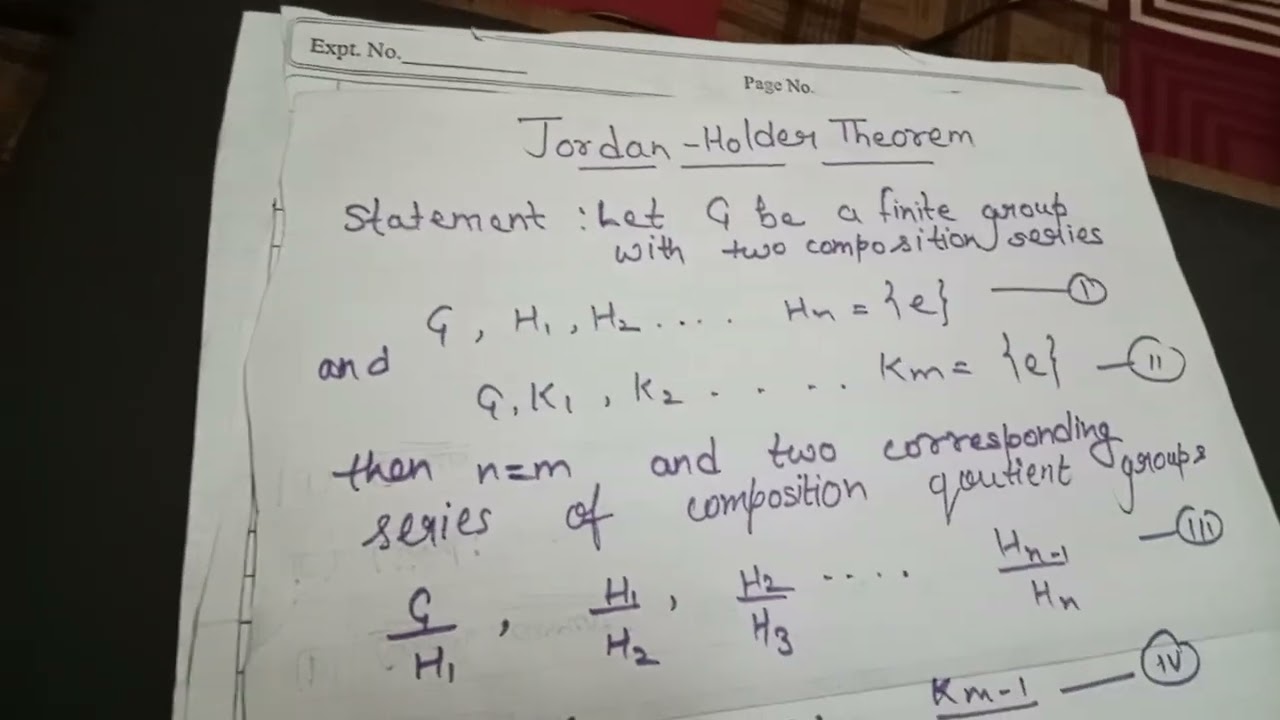 Expt. No.
Page No.
Jordan-Holder Theorem
Statement : Let G be a finite group
with two composition series
G, H₁, H₂ .... Hn = {e} — (I)
and
G, K₁, K₂ . . . . Km = {e} — (II)
then n=m and two corresponding
series of composition qoutient groups
G/H₁, H₁/H₂, H₂/H₃ .... Hn-1/Hn — (III)
Km-1 — (IV)